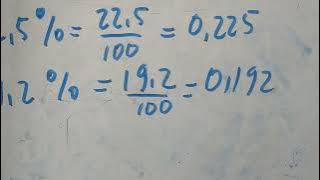 ,5% = 22,5/100 = 0,225
,2% = 19,2/100 = 0,192